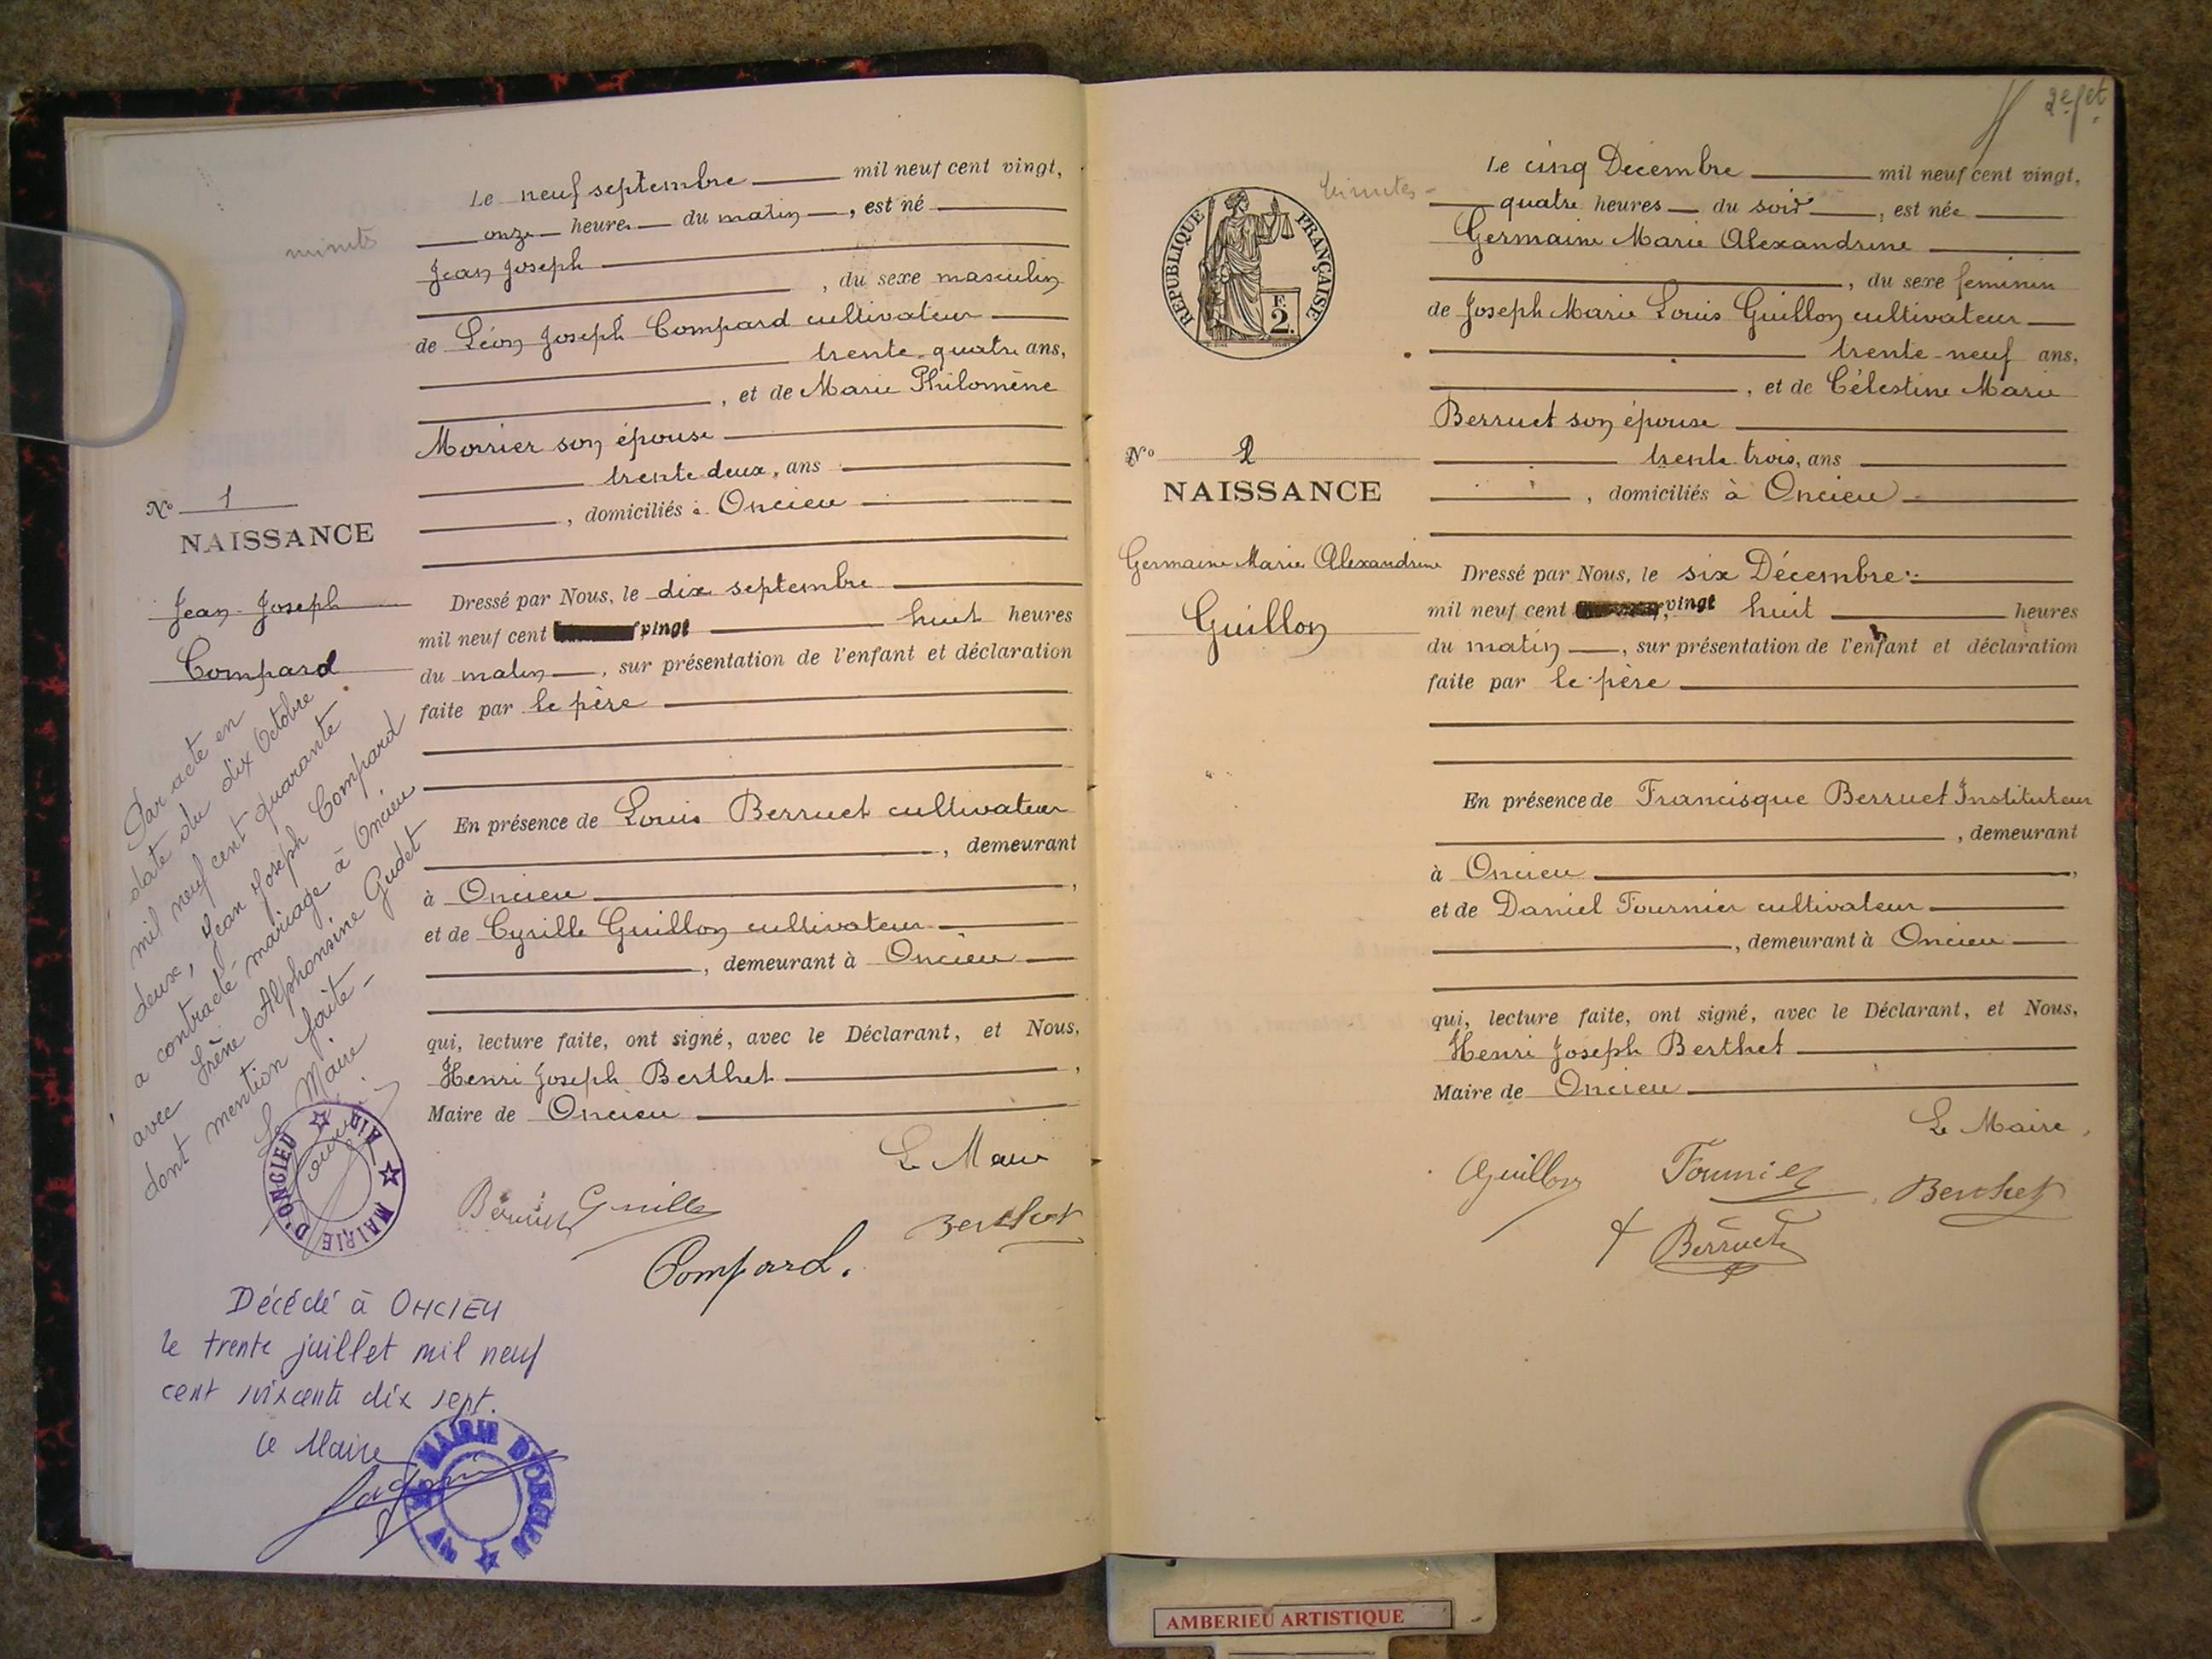 Le neuf septembre mil neuf cent vingt,
onze heures du matin, est né
minuts
Jean Joseph
, du sexe masculin
de Léon Joseph Compard cultivateur
trente-quatre ans,
, et de Marie Philomène
Morrier son épouse
trente deux, ans
, domiciliés à Oncieu
No 1
NAISSANCE
Jean Joseph
Compard
Dressé par Nous, le dix septembre
mil neuf cent vingt huit heures
du matin, sur présentation de l'enfant et déclaration
faite par le père
En présence de Louis Berruet cultivateur
, demeurant
à Oncieu,
et de Cyrille Guillon cultivateur
, demeurant à Oncieu
qui, lecture faite, ont signé, avec le Déclarant, et Nous,
Henri Joseph Berthet,
Maire de Oncieu
Le Maire
Berruet Guillon
Berthet
Compard.
Par acte en
date du dix Octobre
mil neuf cent quarante
deux, Jean Joseph Compard
a contracté mariage à Oncieu
avec Irène Alphonsine Gudet
dont mention faite-
Le Maire
MAIRIE D'ONCIEU AIN
Décédé à ONCIEU
le trente juillet mil neuf
cent soixante dix sept.
Le Maire
MAIRIE D'ONCIEU AIN
2e fet
Le cinq Decembre mil neuf cent vingt,
minutes -
quatre heures du soir, est née
Germaine Marie Alexandrine
, du sexe feminin
de Joseph Marie Louis Guillon cultivateur
trente-neuf ans,
, et de Célestine Marie
Berruet son épouse
trente trois, ans
, domiciliés à Oncieu
REPUBLIQUE FRANÇAISE
F.
2.
No 2
NAISSANCE
Germaine Marie Alexandrine
Guillon
Dressé par Nous, le six Décembre
mil neuf cent vingt huit heures
du matin, sur présentation de l'enfant et déclaration
faite par le père
En présence de Francisque Berruet Instituteur
, demeurant
à Oncieu,
et de Daniel Fournier cultivateur
, demeurant à Oncieu
qui, lecture faite, ont signé, avec le Déclarant, et Nous,
Henri Joseph Berthet
Maire de Oncieu
Le Maire,
Guillon Fournier Berthet
Berruet
AMBERIEU ARTISTIQUE